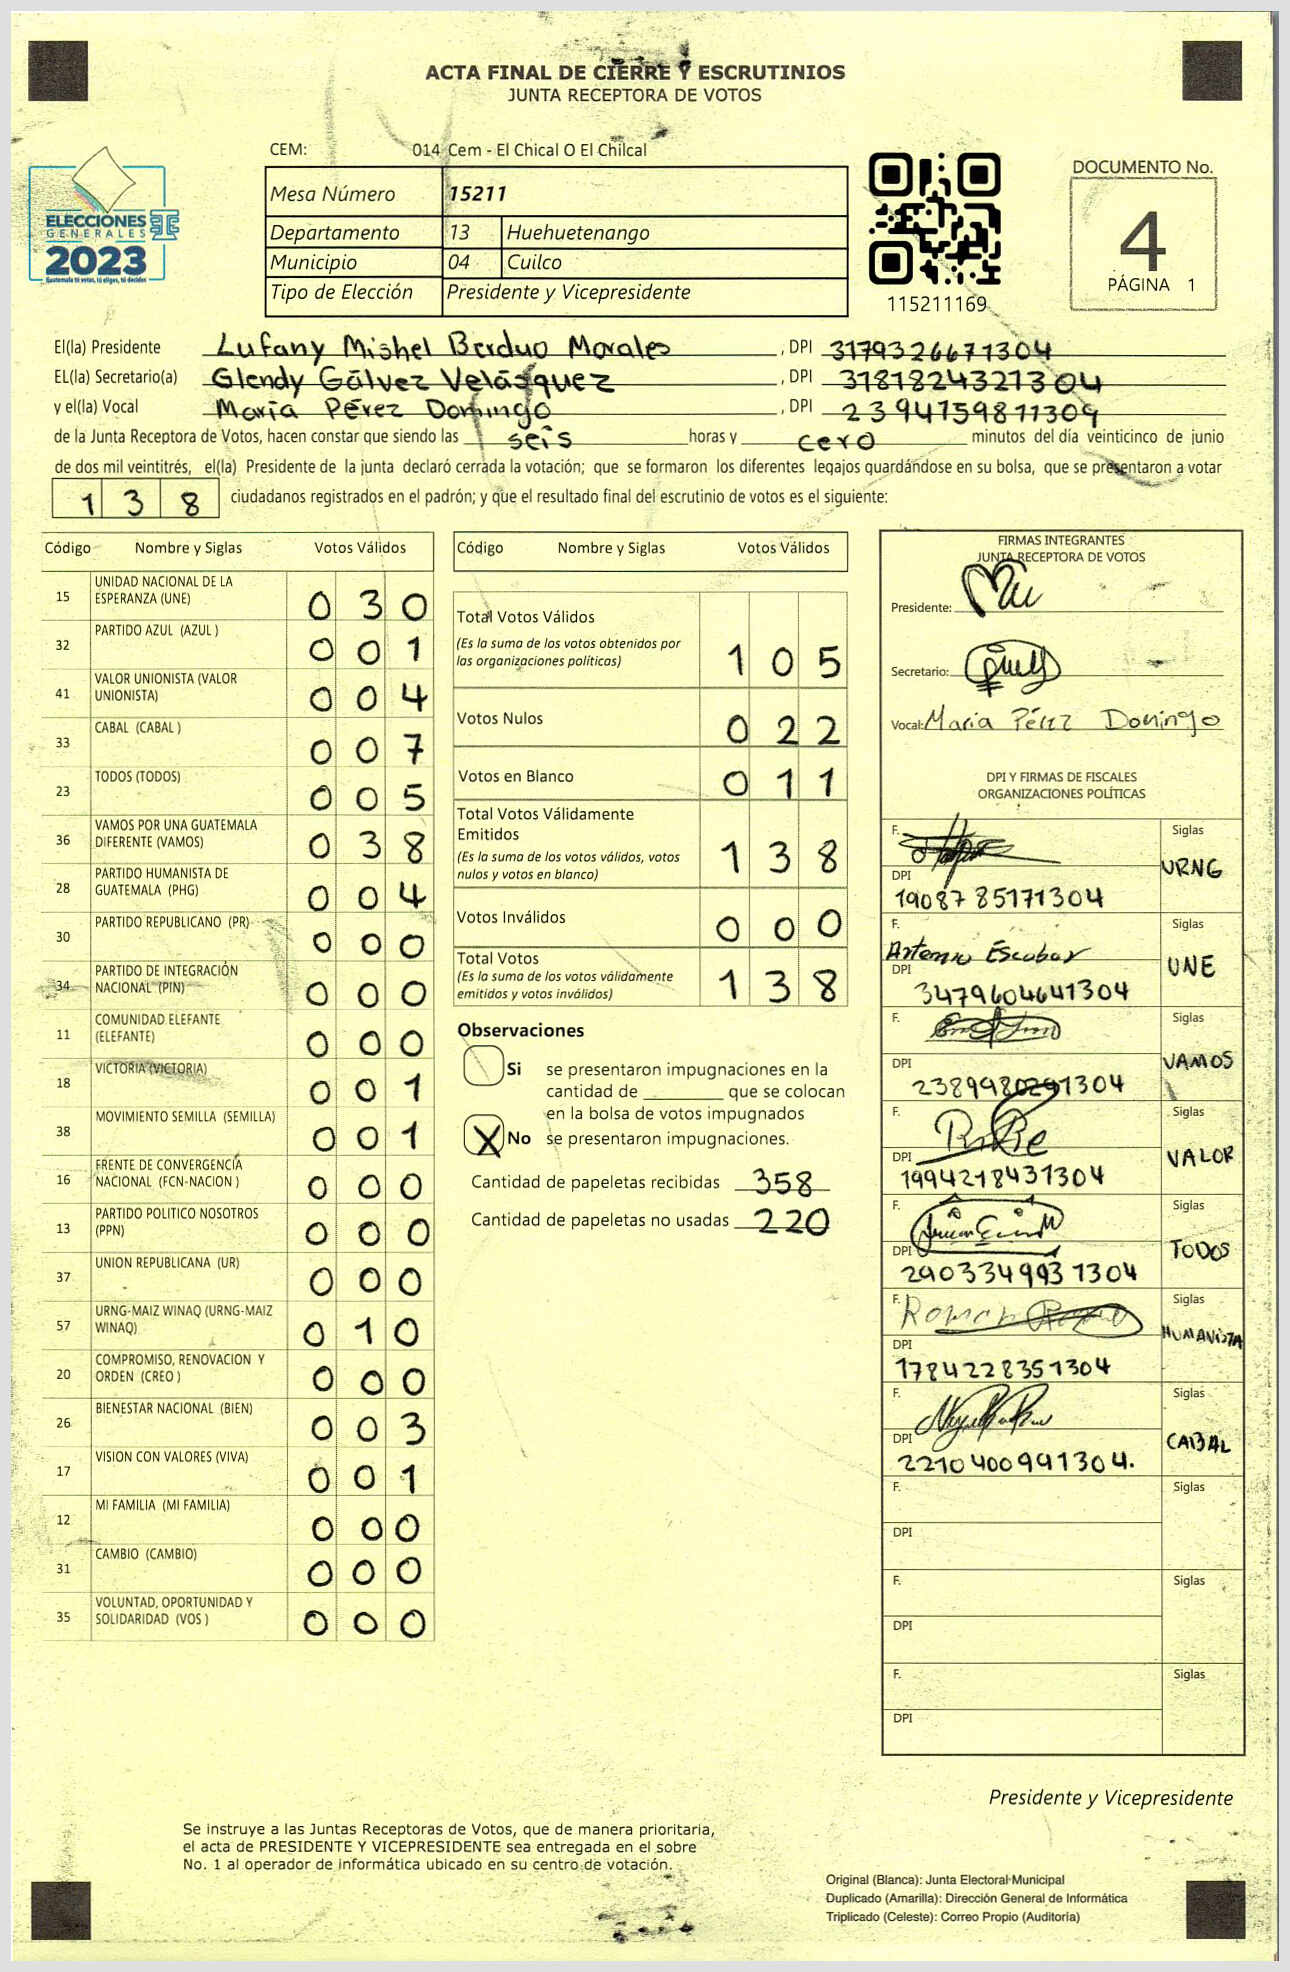 ACTA FINAL DE CIERRE Y ESCRUTINIOS
JUNTA RECEPTORA DE VOTOS
CEM: 014 Cem - El Chical O El Chilcal
ELECCIONES
GENERALES
2023
Guatemala tú votas, tú eliges, tú decides
Mesa Número 15211
Departamento 13 Huehuetenango
Municipio 04 Cuilco
Tipo de Elección Presidente y Vicepresidente
115211169
DOCUMENTO No.
4
PÁGINA 1
El(la) Presidente Lufany Mishel Berduo Morales , DPI 3179326671304
EL(la) Secretario(a) Glendy Gálvez Velásquez , DPI 3181824321304
y el(la) Vocal María Pérez Domingo , DPI 2394759811304
de la Junta Receptora de Votos, hacen constar que siendo las seis horas y cero minutos del día veinticinco de junio
de dos mil veintitrés, el(la) Presidente de la junta declaró cerrada la votación; que se formaron los diferentes legajos guardándose en su bolsa, que se presentaron a votar
138 ciudadanos registrados en el padrón; y que el resultado final del escrutinio de votos es el siguiente:
Código Nombre y Siglas Votos Válidos
15 UNIDAD NACIONAL DE LA ESPERANZA (UNE) 030
32 PARTIDO AZUL (AZUL ) 001
41 VALOR UNIONISTA (VALOR UNIONISTA) 004
33 CABAL (CABAL ) 007
23 TODOS (TODOS) 005
36 VAMOS POR UNA GUATEMALA DIFERENTE (VAMOS) 038
28 PARTIDO HUMANISTA DE GUATEMALA (PHG) 004
30 PARTIDO REPUBLICANO (PR) 000
34 PARTIDO DE INTEGRACIÓN NACIONAL (PIN) 000
11 COMUNIDAD ELEFANTE (ELEFANTE) 000
18 VICTORIA (VICTORIA) 001
38 MOVIMIENTO SEMILLA (SEMILLA) 001
16 FRENTE DE CONVERGENCIA NACIONAL (FCN-NACION ) 000
13 PARTIDO POLITICO NOSOTROS (PPN) 000
37 UNION REPUBLICANA (UR) 000
57 URNG-MAIZ WINAQ (URNG-MAIZ WINAQ) 010
20 COMPROMISO, RENOVACION Y ORDEN (CREO ) 000
26 BIENESTAR NACIONAL (BIEN) 003
17 VISION CON VALORES (VIVA) 001
12 MI FAMILIA (MI FAMILIA) 000
31 CAMBIO (CAMBIO) 000
35 VOLUNTAD, OPORTUNIDAD Y SOLIDARIDAD (VOS ) 000
Código Nombre y Siglas Votos Válidos
Total Votos Válidos
(Es la suma de los votos obtenidos por
las organizaciones políticas) 105
Votos Nulos 022
Votos en Blanco 011
Total Votos Válidamente
Emitidos
(Es la suma de los votos válidos, votos
nulos y votos en blanco) 138
Votos Inválidos 000
Total Votos
(Es la suma de los votos válidamente
emitidos y votos inválidos) 138
Observaciones
Si se presentaron impugnaciones en la
cantidad de ________ que se colocan
en la bolsa de votos impugnados
X No se presentaron impugnaciones.
Cantidad de papeletas recibidas 358
Cantidad de papeletas no usadas 220
FIRMAS INTEGRANTES
JUNTA RECEPTORA DE VOTOS
Presidente:
Secretario:
Vocal: Maria Pérez Domingo
DPI Y FIRMAS DE FISCALES
ORGANIZACIONES POLÍTICAS
F. Siglas
URNG
DPI 1908785171304
F. Siglas
Artemio Escobar UNE
DPI 3479604641304
F. Siglas
VAMOS
DPI 2389980291304
F. Siglas
VALOR
DPI 1994218431304
F. Siglas
TODOS
DPI 2903349931304
F. Siglas
Roman HUMANISTA
DPI 1784228351304
F. Siglas
CABAL
DPI 2210400991304.
F. Siglas
DPI
F. Siglas
DPI
F. Siglas
DPI
Presidente y Vicepresidente
Se instruye a las Juntas Receptoras de Votos, que de manera prioritaria,
el acta de PRESIDENTE Y VICEPRESIDENTE sea entregada en el sobre
No. 1 al operador de informática ubicado en su centro de votación.
Original (Blanca): Junta Electoral Municipal
Duplicado (Amarilla): Dirección General de Informática
Triplicado (Celeste): Correo Propio (Auditoría)